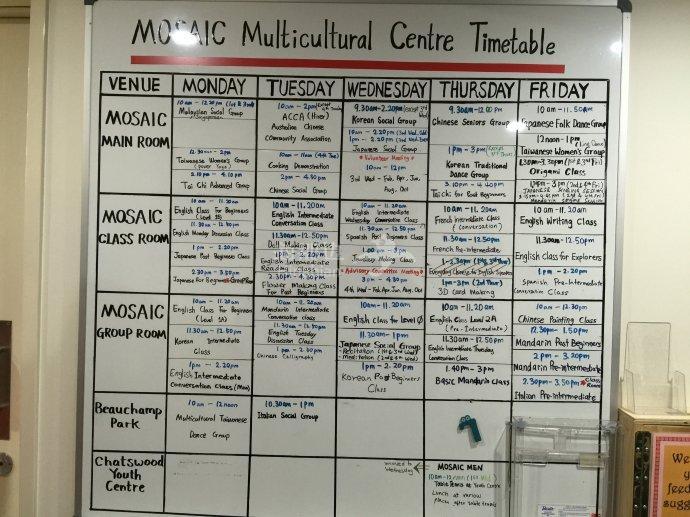 MOSAIC Multicultural Centre Timetable
VENUE MONDAY TUESDAY WEDNESDAY THURSDAY FRIDAY
MOSAIC
MAIN ROOM
Malaysian Social Group
12.30am - 2pm
Taiwanese Women's Group
2.10pm - 4.10pm
Tai Chi Advanced Group
10am - 2pm
ACCA (Hiver)
Australian Chinese
Community Association
10am - 11am (4th Tue)
Cooking Demonstration
2pm - 4.30pm
Chinese Social Group
9.30am-2.20pm
Korean Social Group
Japanese Social Group
Volunteer Meeting
10am - 12pm
3rd Wed - Feb, Apr, Jun,
Aug, Oct
9.30am - 12.00pm
Chinese Seniors Group
1pm - 3pm
Korean Traditional
Dance Group
3.10pm - 4.40pm
Taichi for Beginners
10am - 11.50am
Japanese Folk Dance Group
12noon - 1pm
Taiwanese Women's Group
1.30pm-3.30pm (1st & 3rd Fri)
Origami Class
MOSAIC
CLASS ROOM
10am - 11.20am
English Class For Beginners
11.30am - 12.50pm
English Monday Discussion Class
1pm - 2.20pm
Japanese Post Beginners Class
2.30pm - 3.50pm
Japanese for Beginners
10am - 11.20am
English Intermediate
Conversation Class
11.30am - 12.50pm
Doll Making Class
1pm - 2.20pm
English Intermediate
Reading Class
2.30pm - 4.30pm
Flower Making Class
For Post Beginners
10am - 11.20am
English Intermediate
Wednesday Conversation Class
11.30am - 12.50pm
Spanish Post Beginners Class
Jewellery Making Class
Advisory Committee Meeting
4th Wed - Feb, Apr, Jun, Aug, Oct
10am - 11.20am
French Intermediate Class
(Conversation)
11.30am - 12.50pm
French Pre-Intermediate
Everyday Chinese for English Speakers
1pm-3pm (2nd Thur)
3D Card Making
10am - 11.20am
English Writing Class
11.30am - 12.50pm
English Class for Explorers
1pm - 2.20pm
Spanish Pre-Intermediate
Conversation Class
MOSAIC
GROUP ROOM
10am - 11.20am
English Class For Beginners
11.30am - 12.50pm
Korean Intermediate
Class
1pm - 2.20pm
English Intermediate
Conversation Class (Mon)
10am - 11.20am
Mandarin Intermediate
Conversation class
11.30am - 12.50pm
English Tuesday
Discussion Class
1pm - 2.30pm
Chinese Calligraphy
10am - 11.20am
English Class for level 0
11.30am - 1pm
Japanese Social Group
1pm - 2.20pm
Korean Post Beginners
Class
10am - 11.20am
English Class Level 2A
(Pre-Intermediate)
11.30am - 12.50pm
English Intermediate Thursday
Conversation Class
1.40pm - 3pm
Basic Mandarin Class
10am - 12.30pm
Chinese Painting Class
12.30pm - 1.50pm
Mandarin Post Beginners
2pm - 3.20pm
Mandarin Pre-intermediate
2.30pm - 3.50pm
Italian Pre-intermediate
Beauchamp
Park
10am - 12noon
Multicultural Taiwanese
Dance Group
10.30am - 1pm
Italian Social Group
Chatswood
Youth
Centre
MOSAIC MEN
Table Tennis at Youth Centre
Lunch at various
places after table tennis